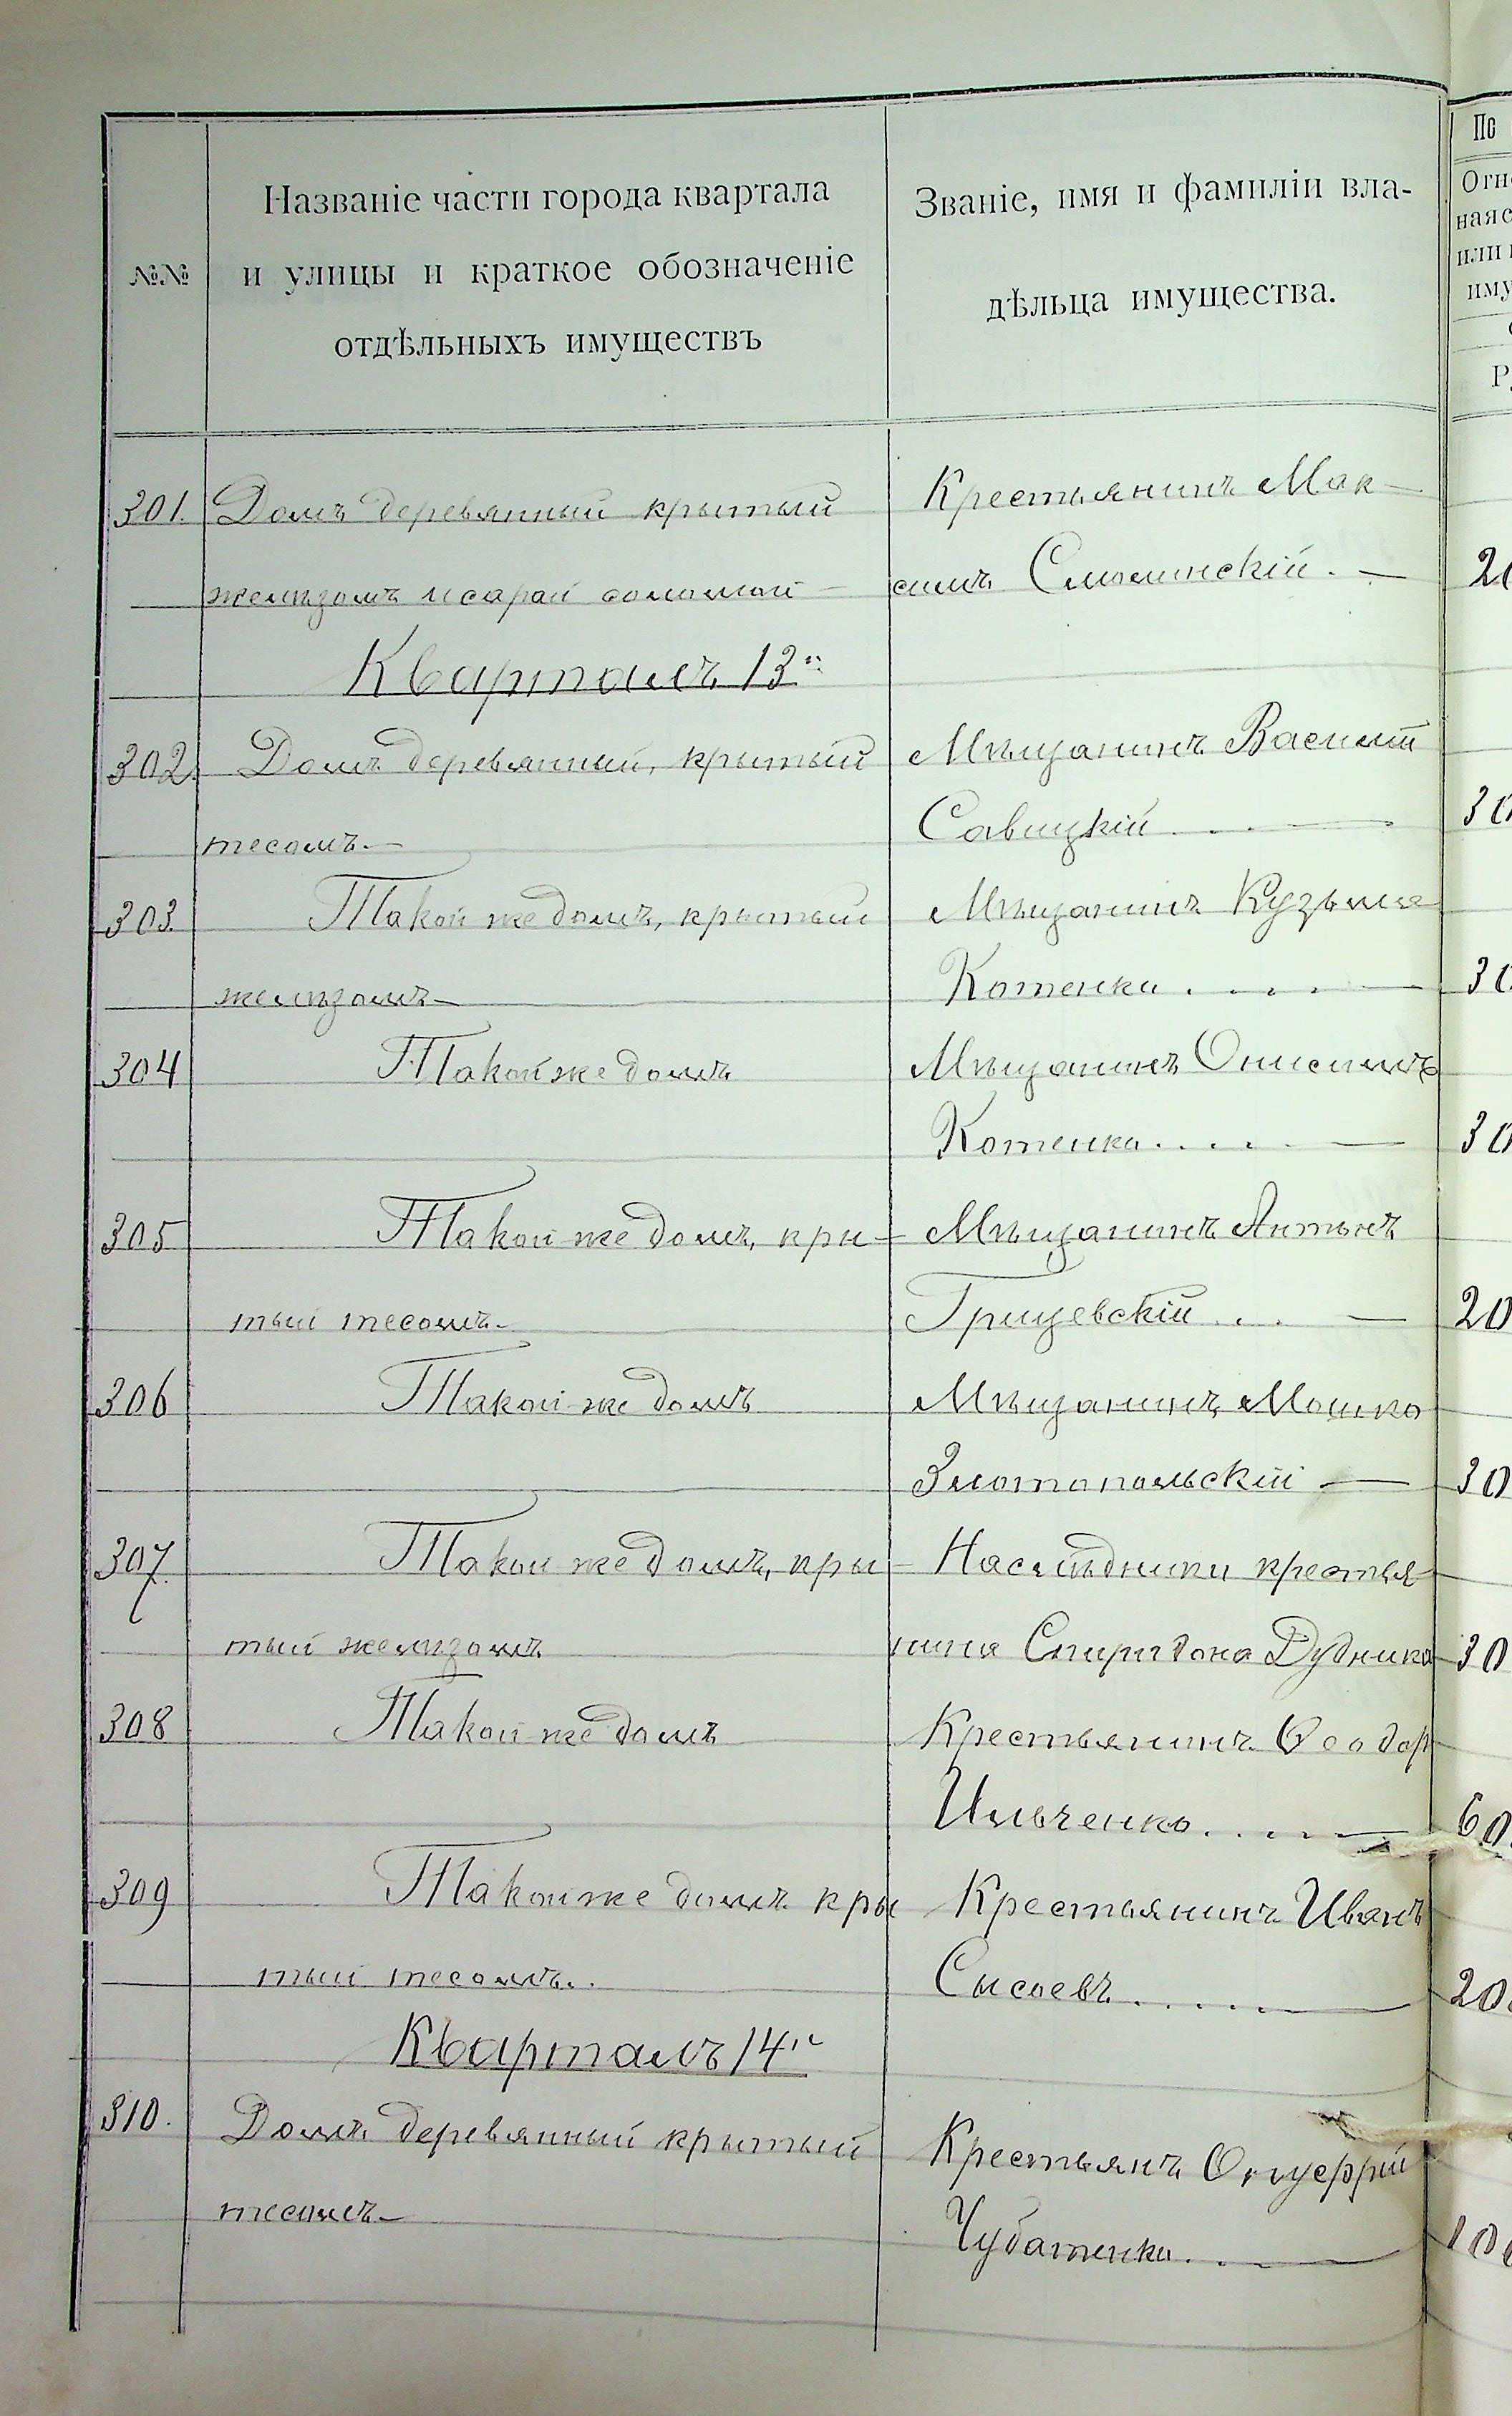 №№
Названіе части города квартала
и улицы и краткое обозначеніе
отдѣльныхъ имуществъ
Званіе, имя и фамиліи вла-
дѣльца имущества.
По
Огн
наяс
или
иму
Р
301. Домъ деревянный крытый
Крестьянинъ Мак-
желѣзомъ и сарай соломой
симъ Смолинскій. —
20
Кварталъ 13й
302. Домъ деревянный, крытый
Мѣщанинъ Василій
тесомъ. —
Савицкій
30
303. Такой же домъ, крытый
Мѣщанинъ Кузьма
желѣзомъ —
Котенко . . . . —
30
304 Такой же домъ
Мѣщанинъ Онисимъ
Котенко . . . . —
30
305 Такой же домъ, кры-
Мѣщанинъ Антонъ
тый тесомъ. —
Грищевскій . . . —
20
306 Такой-же домъ
Мѣщанинъ Мошко
Златопольскій —
30
307. Такой же домъ, кры-
Наслѣдники крестья-
тый желѣзомъ
нина Спиридона Дудника
30
308 Такой-же домъ
Крестьянинъ Ѳеодоръ
Ильченко . . . . —
60
309 Такой же домъ кры
Крестьянинъ Иванъ
тый тесомъ. .
Сысоевъ . . . . . —
20
Кварталъ 14й
310. Домъ деревянный крытый
Крестьянъ Онуфрій
тесомъ —
Чубатенко . . . —
100